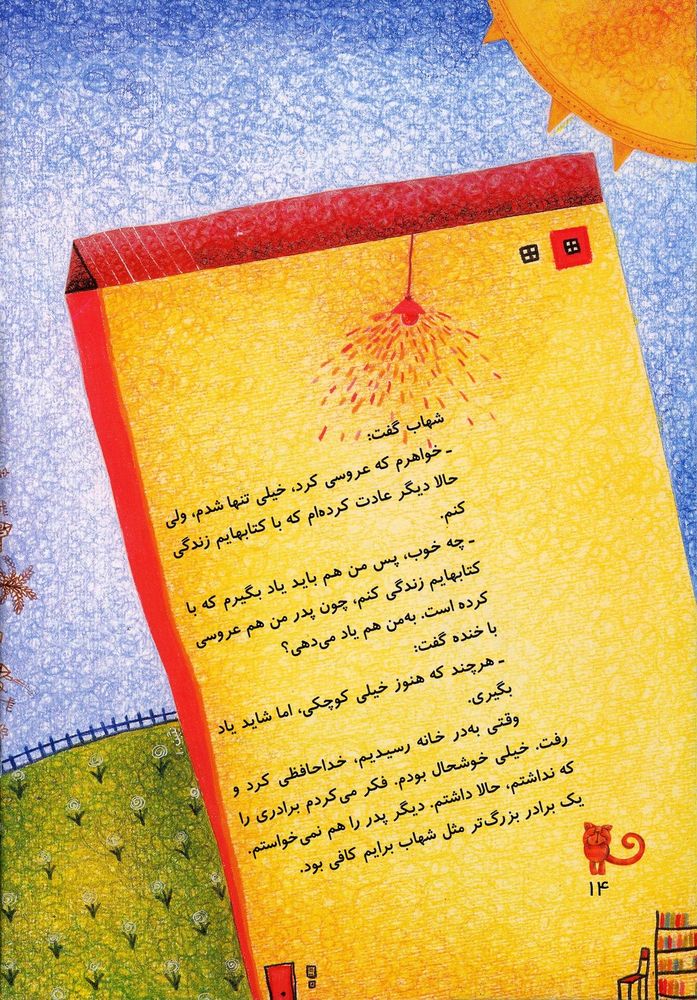 شهاب گفت:
ـ خواهرم که عروسی کرد، خیلی تنها شدم، ولی
حالا دیگر عادت کرده‌ام که با کتابهایم زندگی
کنم.
ـ چه خوب، پس من هم باید یاد بگیرم که با
کتابهایم زندگی کنم، چون پدر من هم عروسی
کرده است. به‌من هم یاد می‌دهی؟
با خنده گفت:
ـ هرچند که هنوز خیلی کوچکی، اما شاید یاد
بگیری.
وقتی به‌در خانه رسیدیم، خداحافظی کرد و
رفت. خیلی خوشحال بودم. فکر می‌کردم برادری را
که نداشتم، حالا داشتم. دیگر پدر را هم نمی‌خواستم.
یک برادر بزرگ‌تر مثل شهاب برایم کافی بود.
۱۴